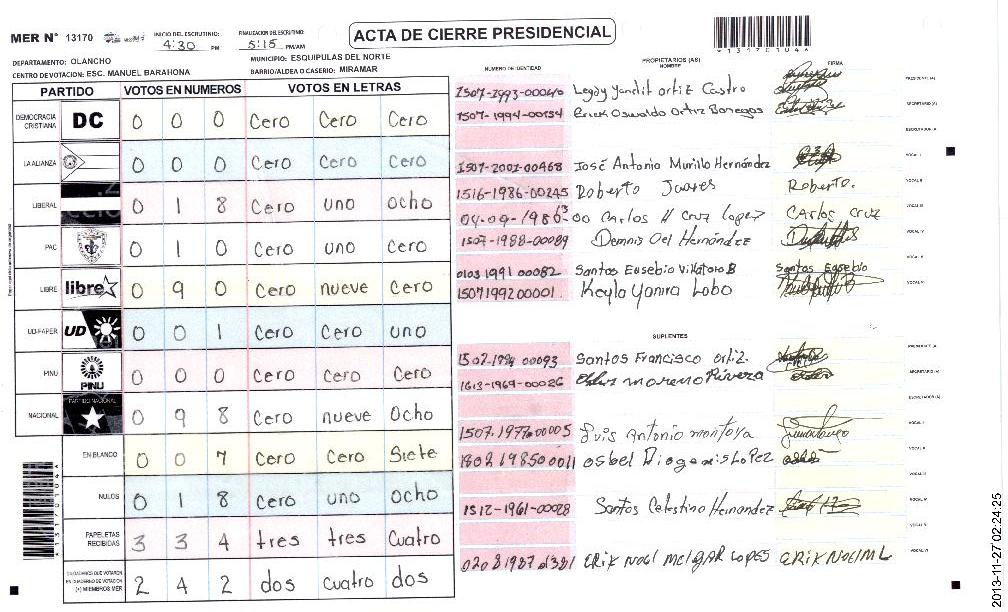 MER N° 13170
INICIO DEL ESCRUTINIO: 4:30 PM
FINALIZACION DEL ESCRUTINIO: 5:15 PM/AM
ACTA DE CIERRE PRESIDENCIAL
DEPARTAMENTO: OLANCHO
MUNICIPIO: ESQUIPULAS DEL NORTE
CENTRO DE VOTACION: ESC. MANUEL BARAHONA
BARRIO/ALDEA O CASERIO: MIRAMAR
PARTIDO VOTOS EN NUMEROS VOTOS EN LETRAS
DEMOCRACIA CRISTIANA DC 0 0 0 Cero Cero Cero
LA ALIANZA 0 0 0 Cero Cero Cero
LIBERAL 0 1 8 Cero uno ocho
PAC 0 1 0 Cero uno Cero
LIBRE libre 0 9 0 Cero nueve Cero
UD-FAPER UD 0 0 1 Cero Cero uno
PINU PINU 0 0 0 Cero Cero Cero
NACIONAL PARTIDO NACIONAL 0 9 8 Cero nueve Ocho
EN BLANCO 0 0 7 Cero Cero Siete
NULOS 0 1 8 Cero uno ocho
PAPELETAS RECIBIDAS 3 3 4 tres tres Cuatro
CIUDADANOS QUE VOTARON EN CUADERNO DE VOTACION (+) MIEMBROS MER 2 4 2 dos cuatro dos
*131701044*
NUMERO DE IDENTIDAD PROPIETARIOS (AS) NOMBRE FIRMA
1507-1993-00040 Legdy Yandit Ortiz Castro PRESIDENTE (A)
1507-1994-00134 Erick Oswaldo Ortiz Banegas SECRETARIO (A)
ESCRUTADOR (A)
1507-2001-00468 José Antonio Murillo Hernández VOCAL I
1516-1986-00245 Roberto Juares Roberto. VOCAL II
Carlos H Cruz Lopez Carlos cruz VOCAL III
1507-1988-00089 Dennis Oel Hernández VOCAL IV
0103 1991 00082 Santos Eusebio Villatoro B Santos Eusebio VOCAL V
1507199200001 Keyla Yanira Lobo VOCAL VI
SUPLENTES
00093 Santos Francisco ortiz. PRESIDENTE (A)
1613-1969-00026 moreno Rivera SECRETARIO (A)
ESCRUTADOR (A)
1507.1977.00005 Luis Antonio montoya VOCAL I
1802 1985 00011 osbel Diogenis Lopez VOCAL II
VOCAL III
1512-1961-00028 Santos Celestino Hernandez VOCAL IV
VOCAL V
ERIK NOEL MELGAR LOPES ERIK NOEL M L VOCAL VI
2013-11-27 02:24:25